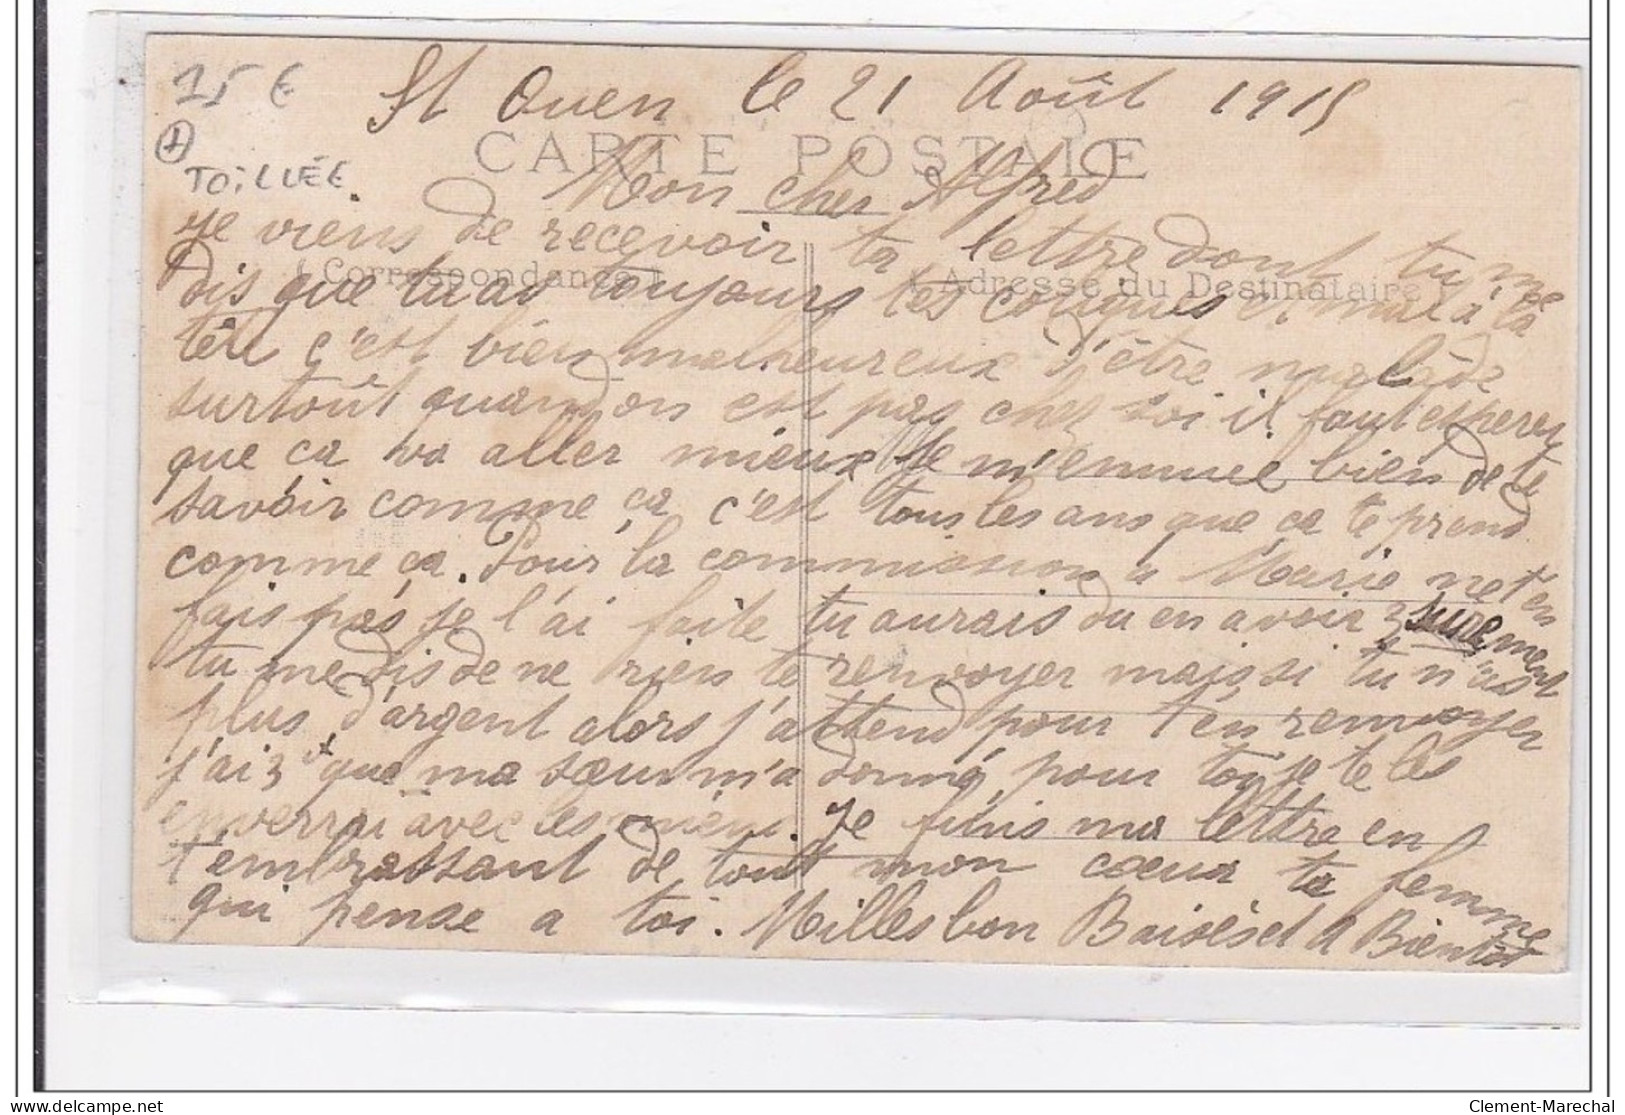 15 €
TOILLÉE
St Ouen le 21 Août 1915
CARTE POSTALE
Mon cher Alfred
Je viens de recevoir ta lettre dont tu me
( Correspondance )
( Adresse du Destinataire )
dis que tu as toujours tes coliques et mal à la
tête c'est bien malheureux d'être malade
surtoût quand on est pas chez soi il faut esperer
que ça va aller mieux Je m'ennuie bien de te
savoir comme ça c'est tous les ans que ça te prend
comme ça. Pour la commission a Marie ne t'en
fais pas je l'ai faite tu aurais du en avoir surement
tu me dis de ne rien te renvoyer mais si tu n'as
plus d'argent alors j'attend pour t'en renvoyer
j'ai 3 que ma sœur m'a donné pour toi je te les
enverrai avec les miens. Je finis ma lettre en
t'embrassant de tout mon cœur ta femme
qui pense a toi. Milles bon Baisés et A Bientôt
delcampe.net
Clement-Marechal